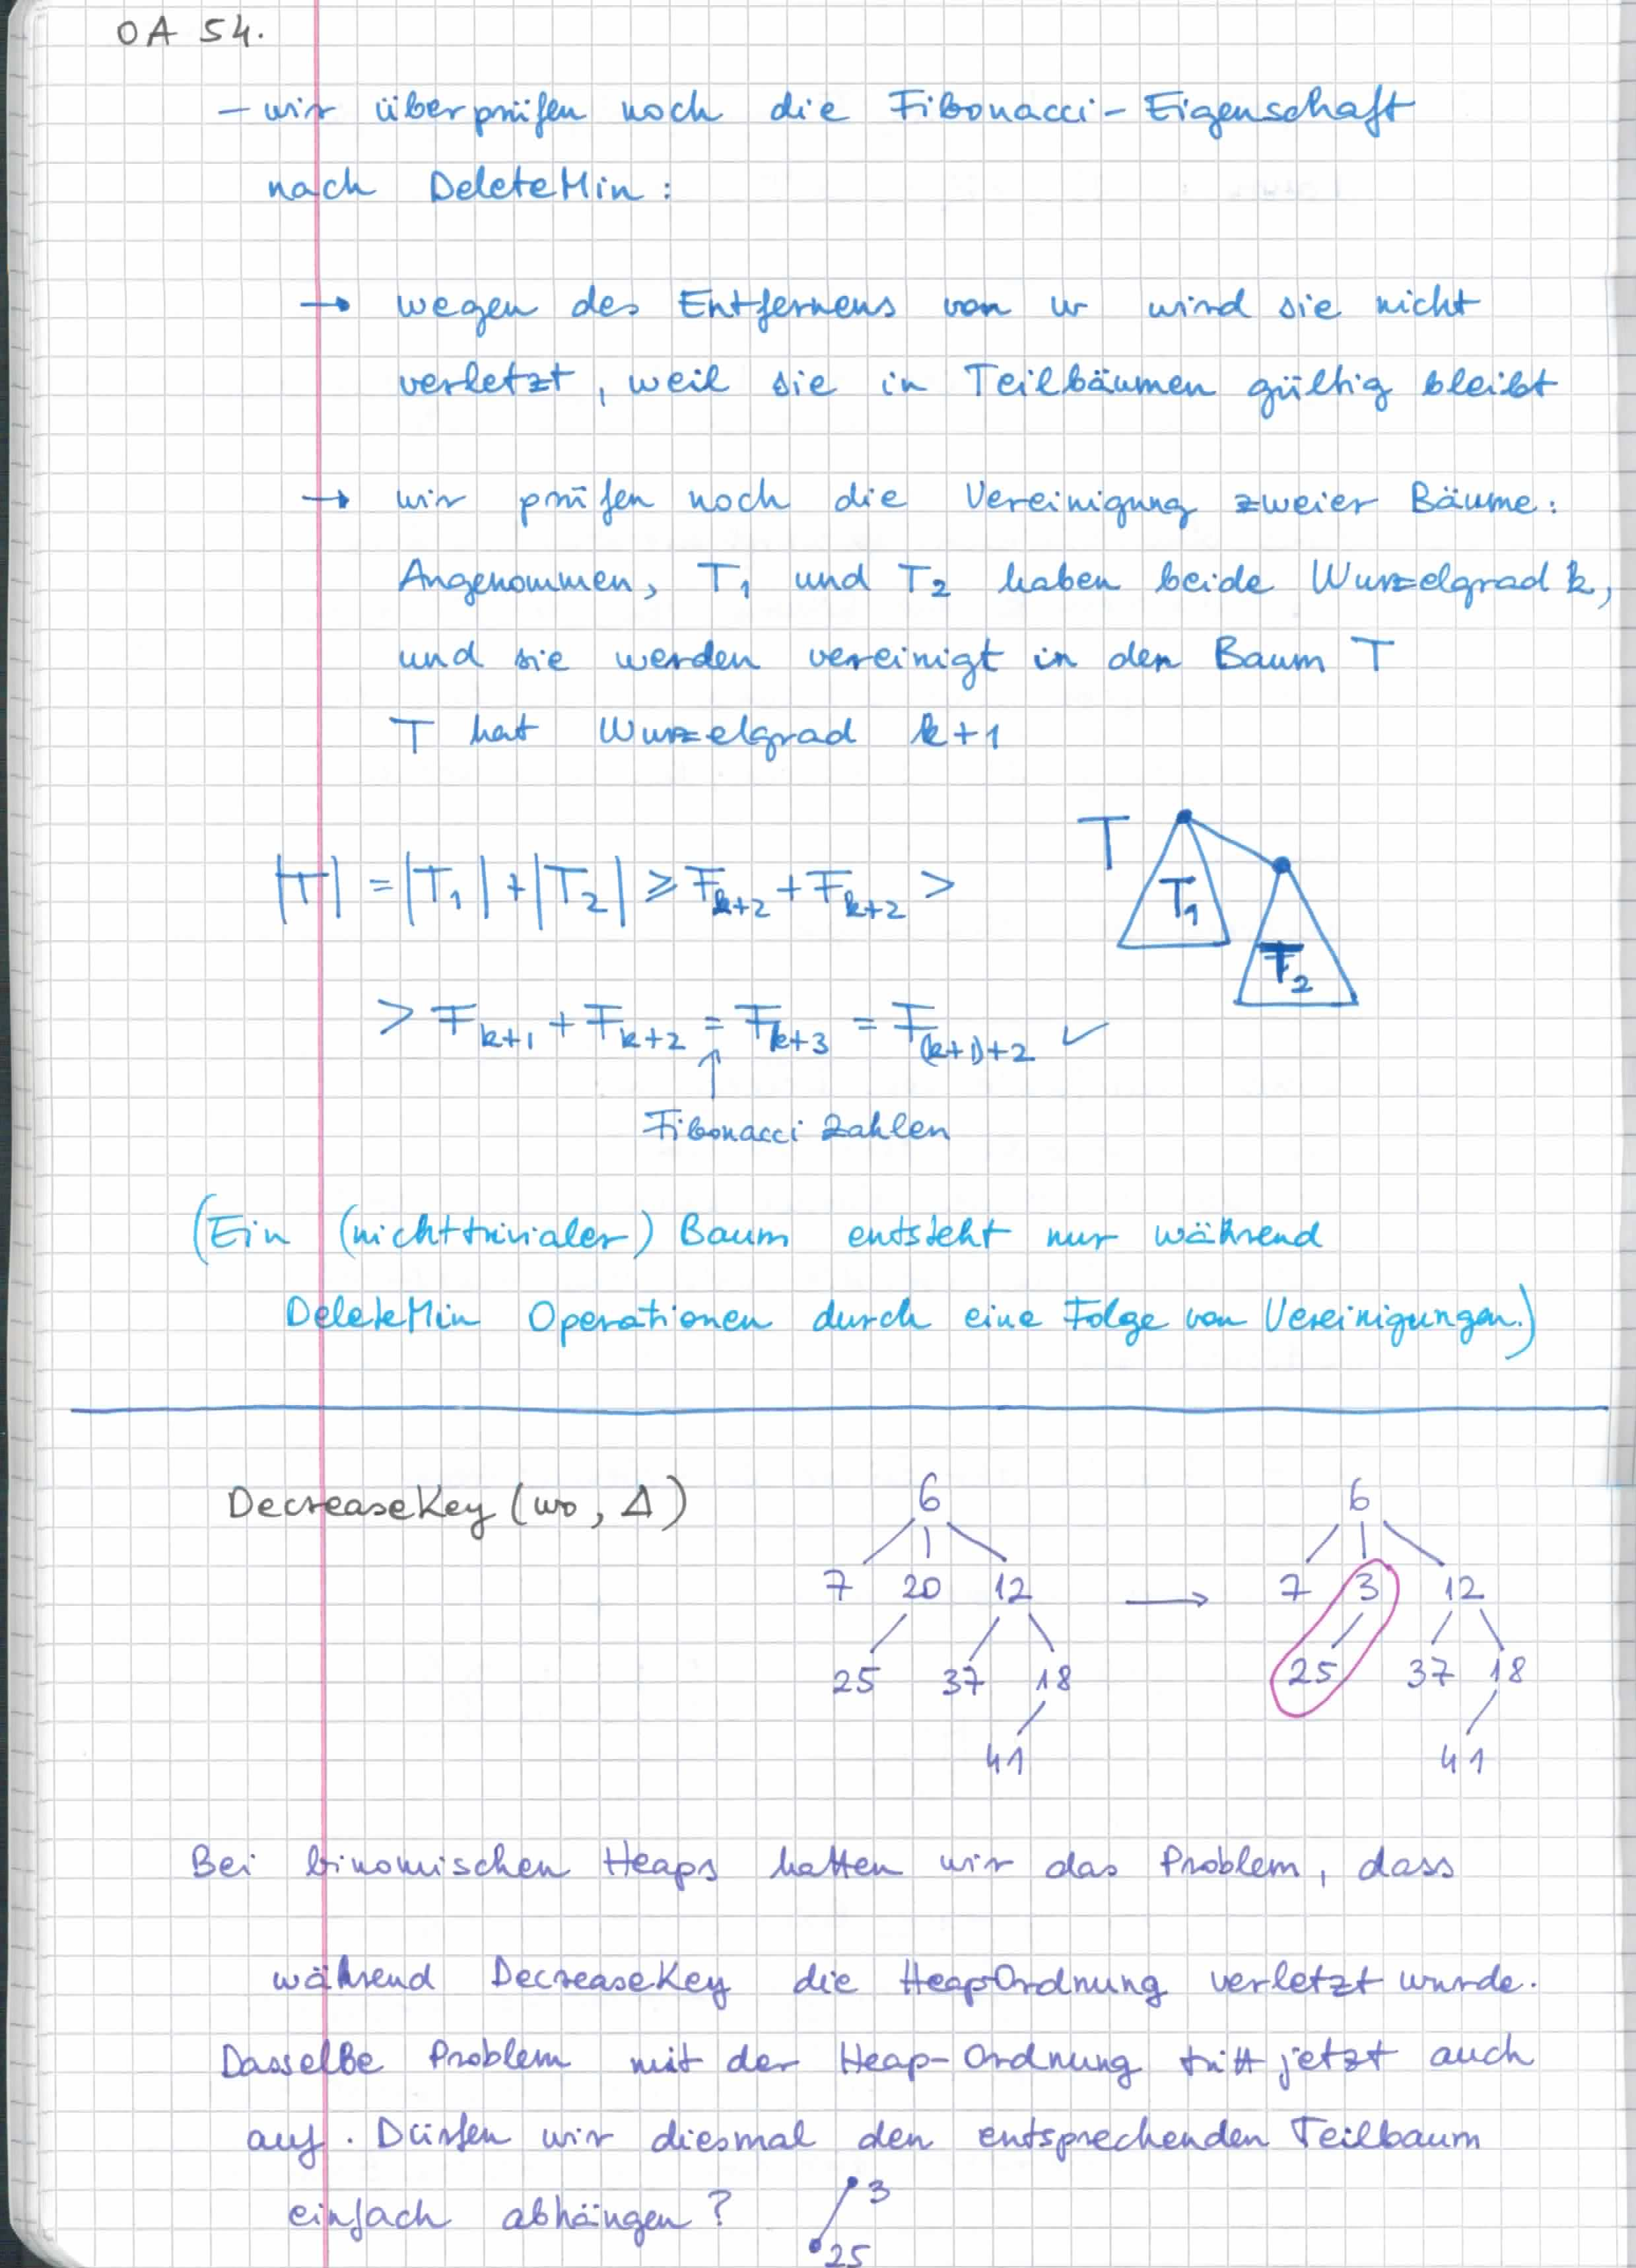 OA 54.
– wir überprüfen noch die Fibonacci-Eigenschaft
nach DeleteMin:
→ wegen des Entfernens von w wird sie nicht
verletzt, weil sie in Teilbäumen gültig bleibt
→ wir prüfen noch die Vereinigung zweier Bäume:
Angenommen, T₁ und T₂ haben beide Wurzelgrad k,
und sie werden vereinigt in den Baum T
T hat Wurzelgrad k+1
|T| = |T₁| + |T₂| ≥ F_{k+2} + F_{k+2} >
T
T₁
T₂
> F_{k+1} + F_{k+2} = F_{k+3} = F_{(k+1)+2} ✓
↑
Fibonacci Zahlen
(Ein (nichttrivialer) Baum entsteht nur während
DeleteMin Operationen durch eine Folge von Vereinigungen.)
DecreaseKey (wo, Δ)
6 6
7 20 12 → 7 3 12
25 37 18 25 37 18
41 41
Bei binomischen Heaps hatten wir das Problem, dass
während DecreaseKey die HeapOrdnung verletzt wurde.
Dasselbe Problem mit der Heap-Ordnung tritt jetzt auch
auf. Dürfen wir diesmal den entsprechenden Teilbaum
einfach abhängen?
3
25